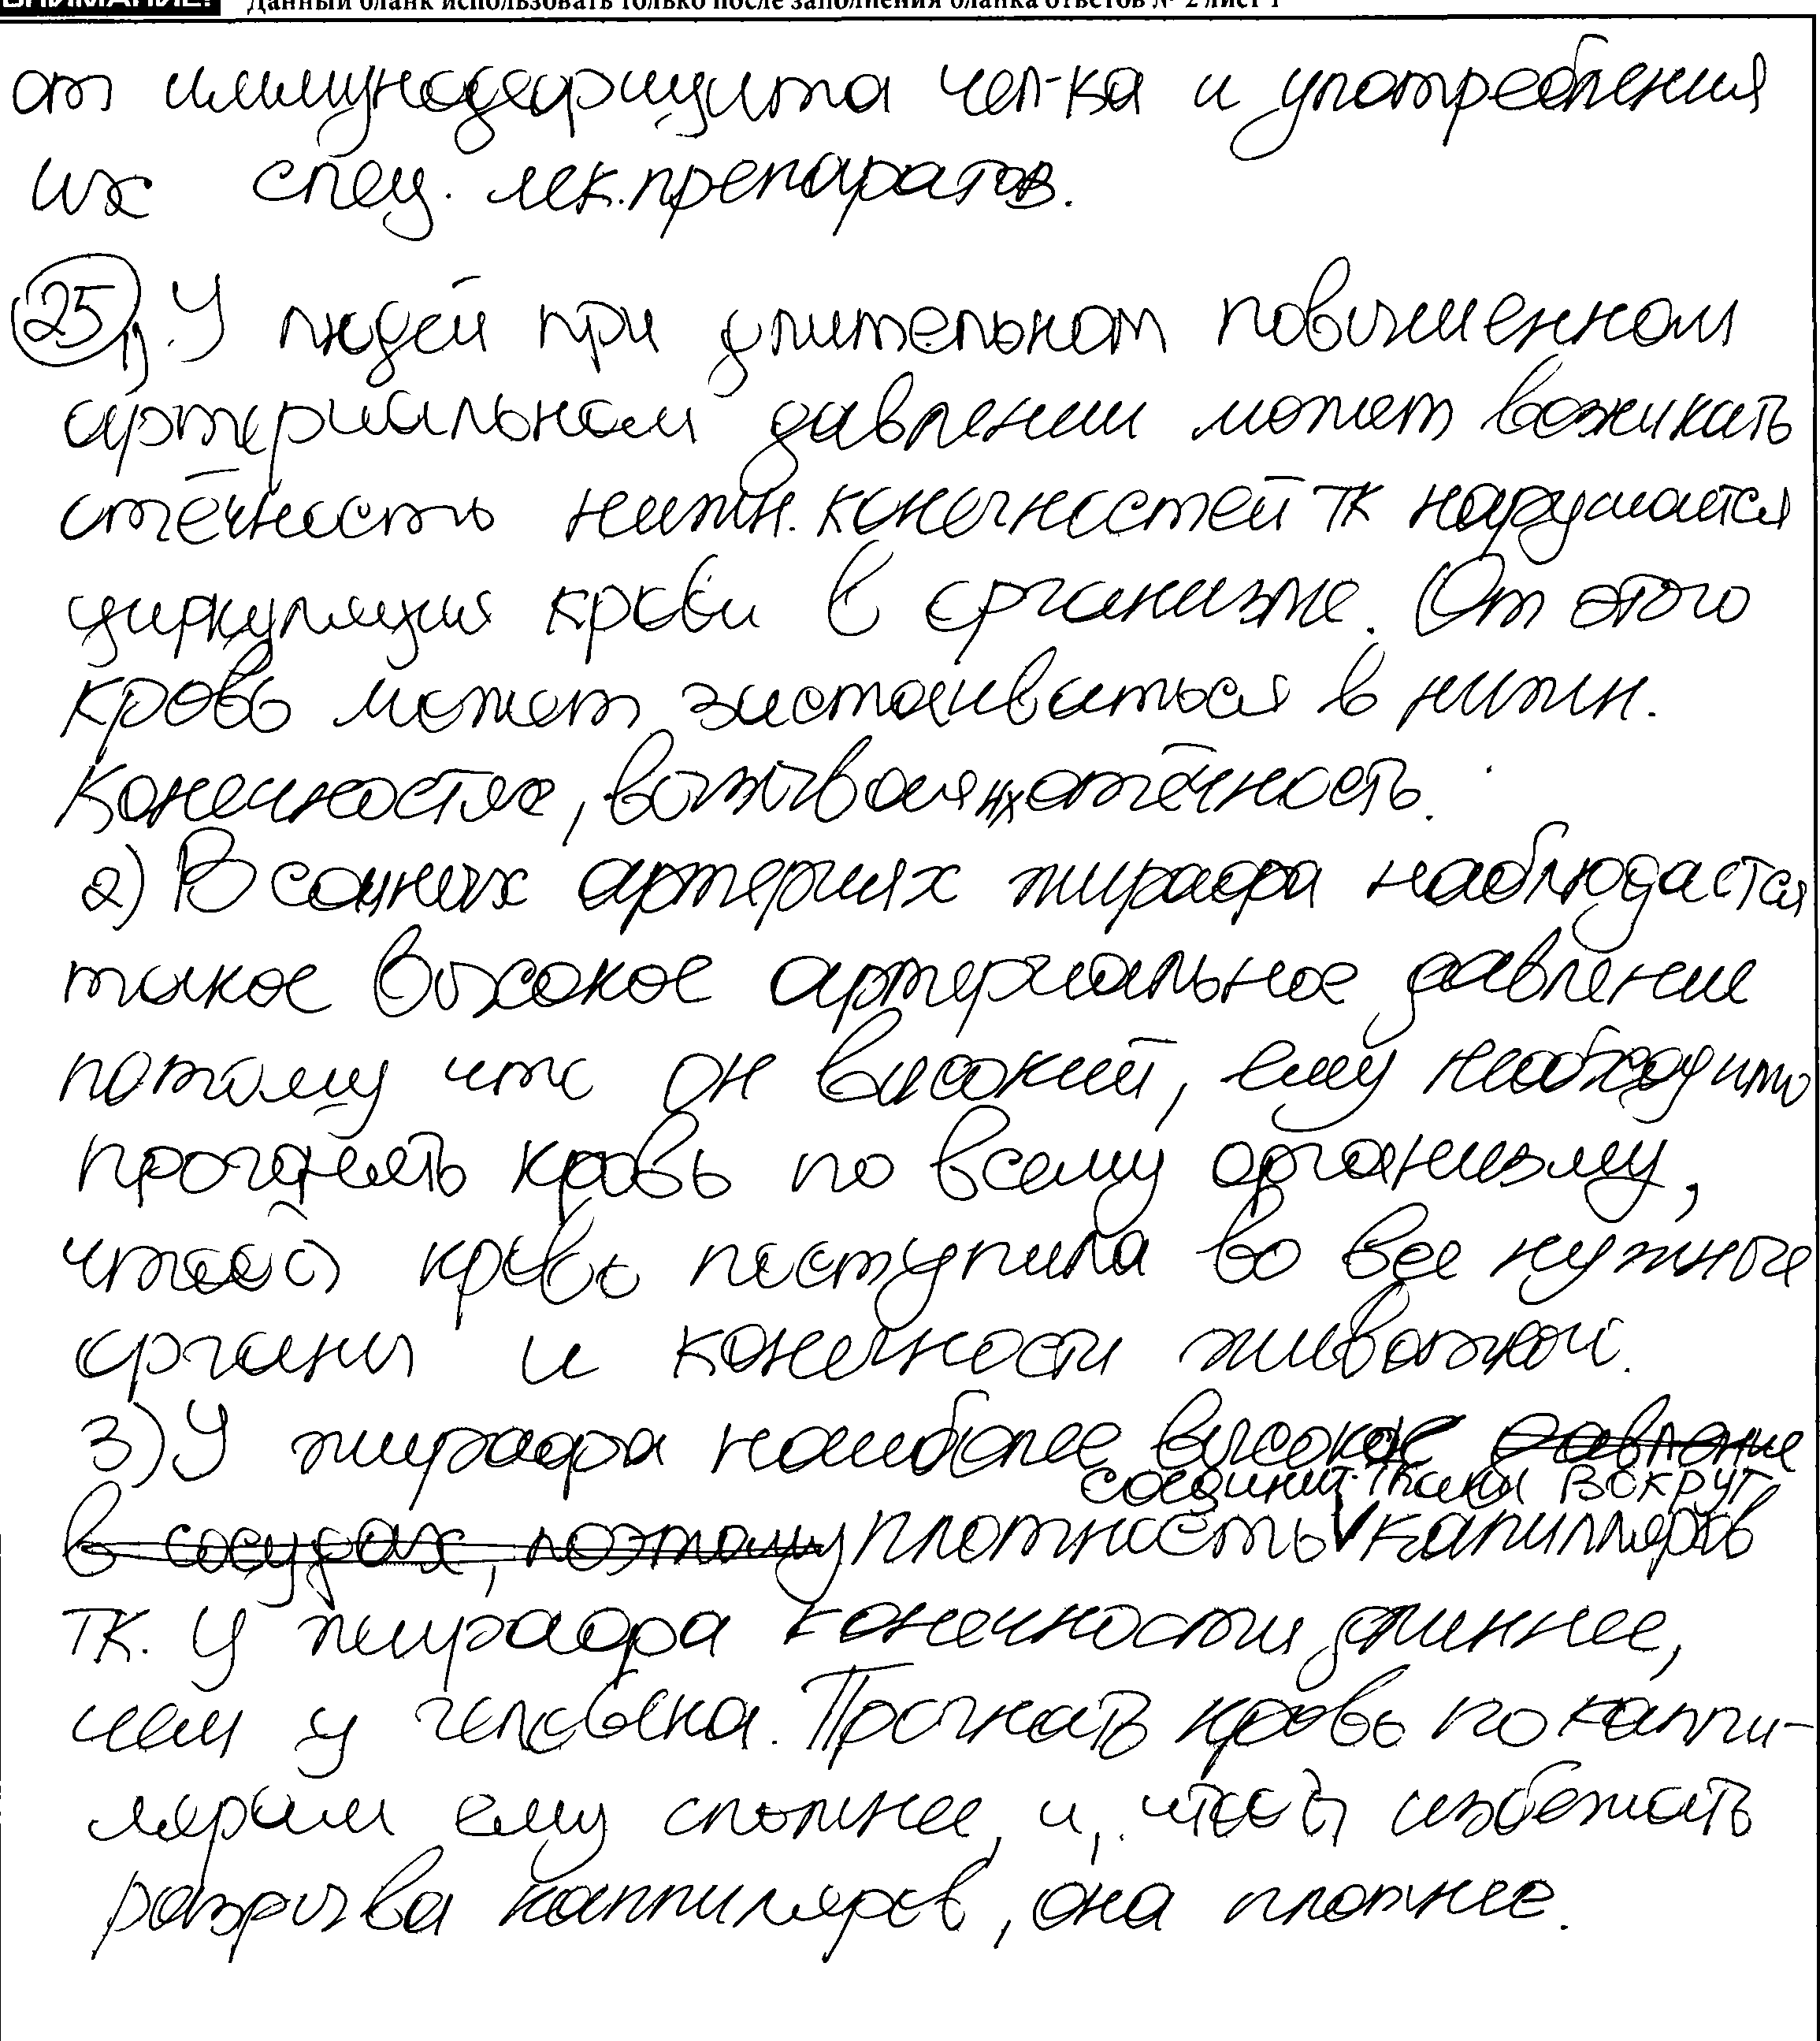 ВНИМАНИЕ! Данный бланк использовать только после заполнения бланка ответов № 2 лист 1
от иммунодефицита чел-ка и употребления
их спец. лек.препаратов.
25 1) У людей при длительном повышенном
артериальном давлении может возникать
отёчность нижн. конечностей тк нарушается
циркуляция крови в организме. От этого
кровь может застаиваться в нижн.
конечностях, вызывая их отёчность.
2) В сонных артериях жирафа наблюдается
такое высокое артериальное давление
потому что он высокий, ему необходимо
прогонять кровь по всему организму,
чтобы кровь поступила во все нужные
органы и конечности животной.
3) У жирафа наиболее высокое давление
соединит. ткани вокруг
в сосудах, поэтому плотность капилляров
тк. у жирафа конечности длиннее,
чем у человека. Прогнать кровь по каппи-
лярам ему сложнее, и, чтобы избежать
разрыва каппиляров, она плотнее.